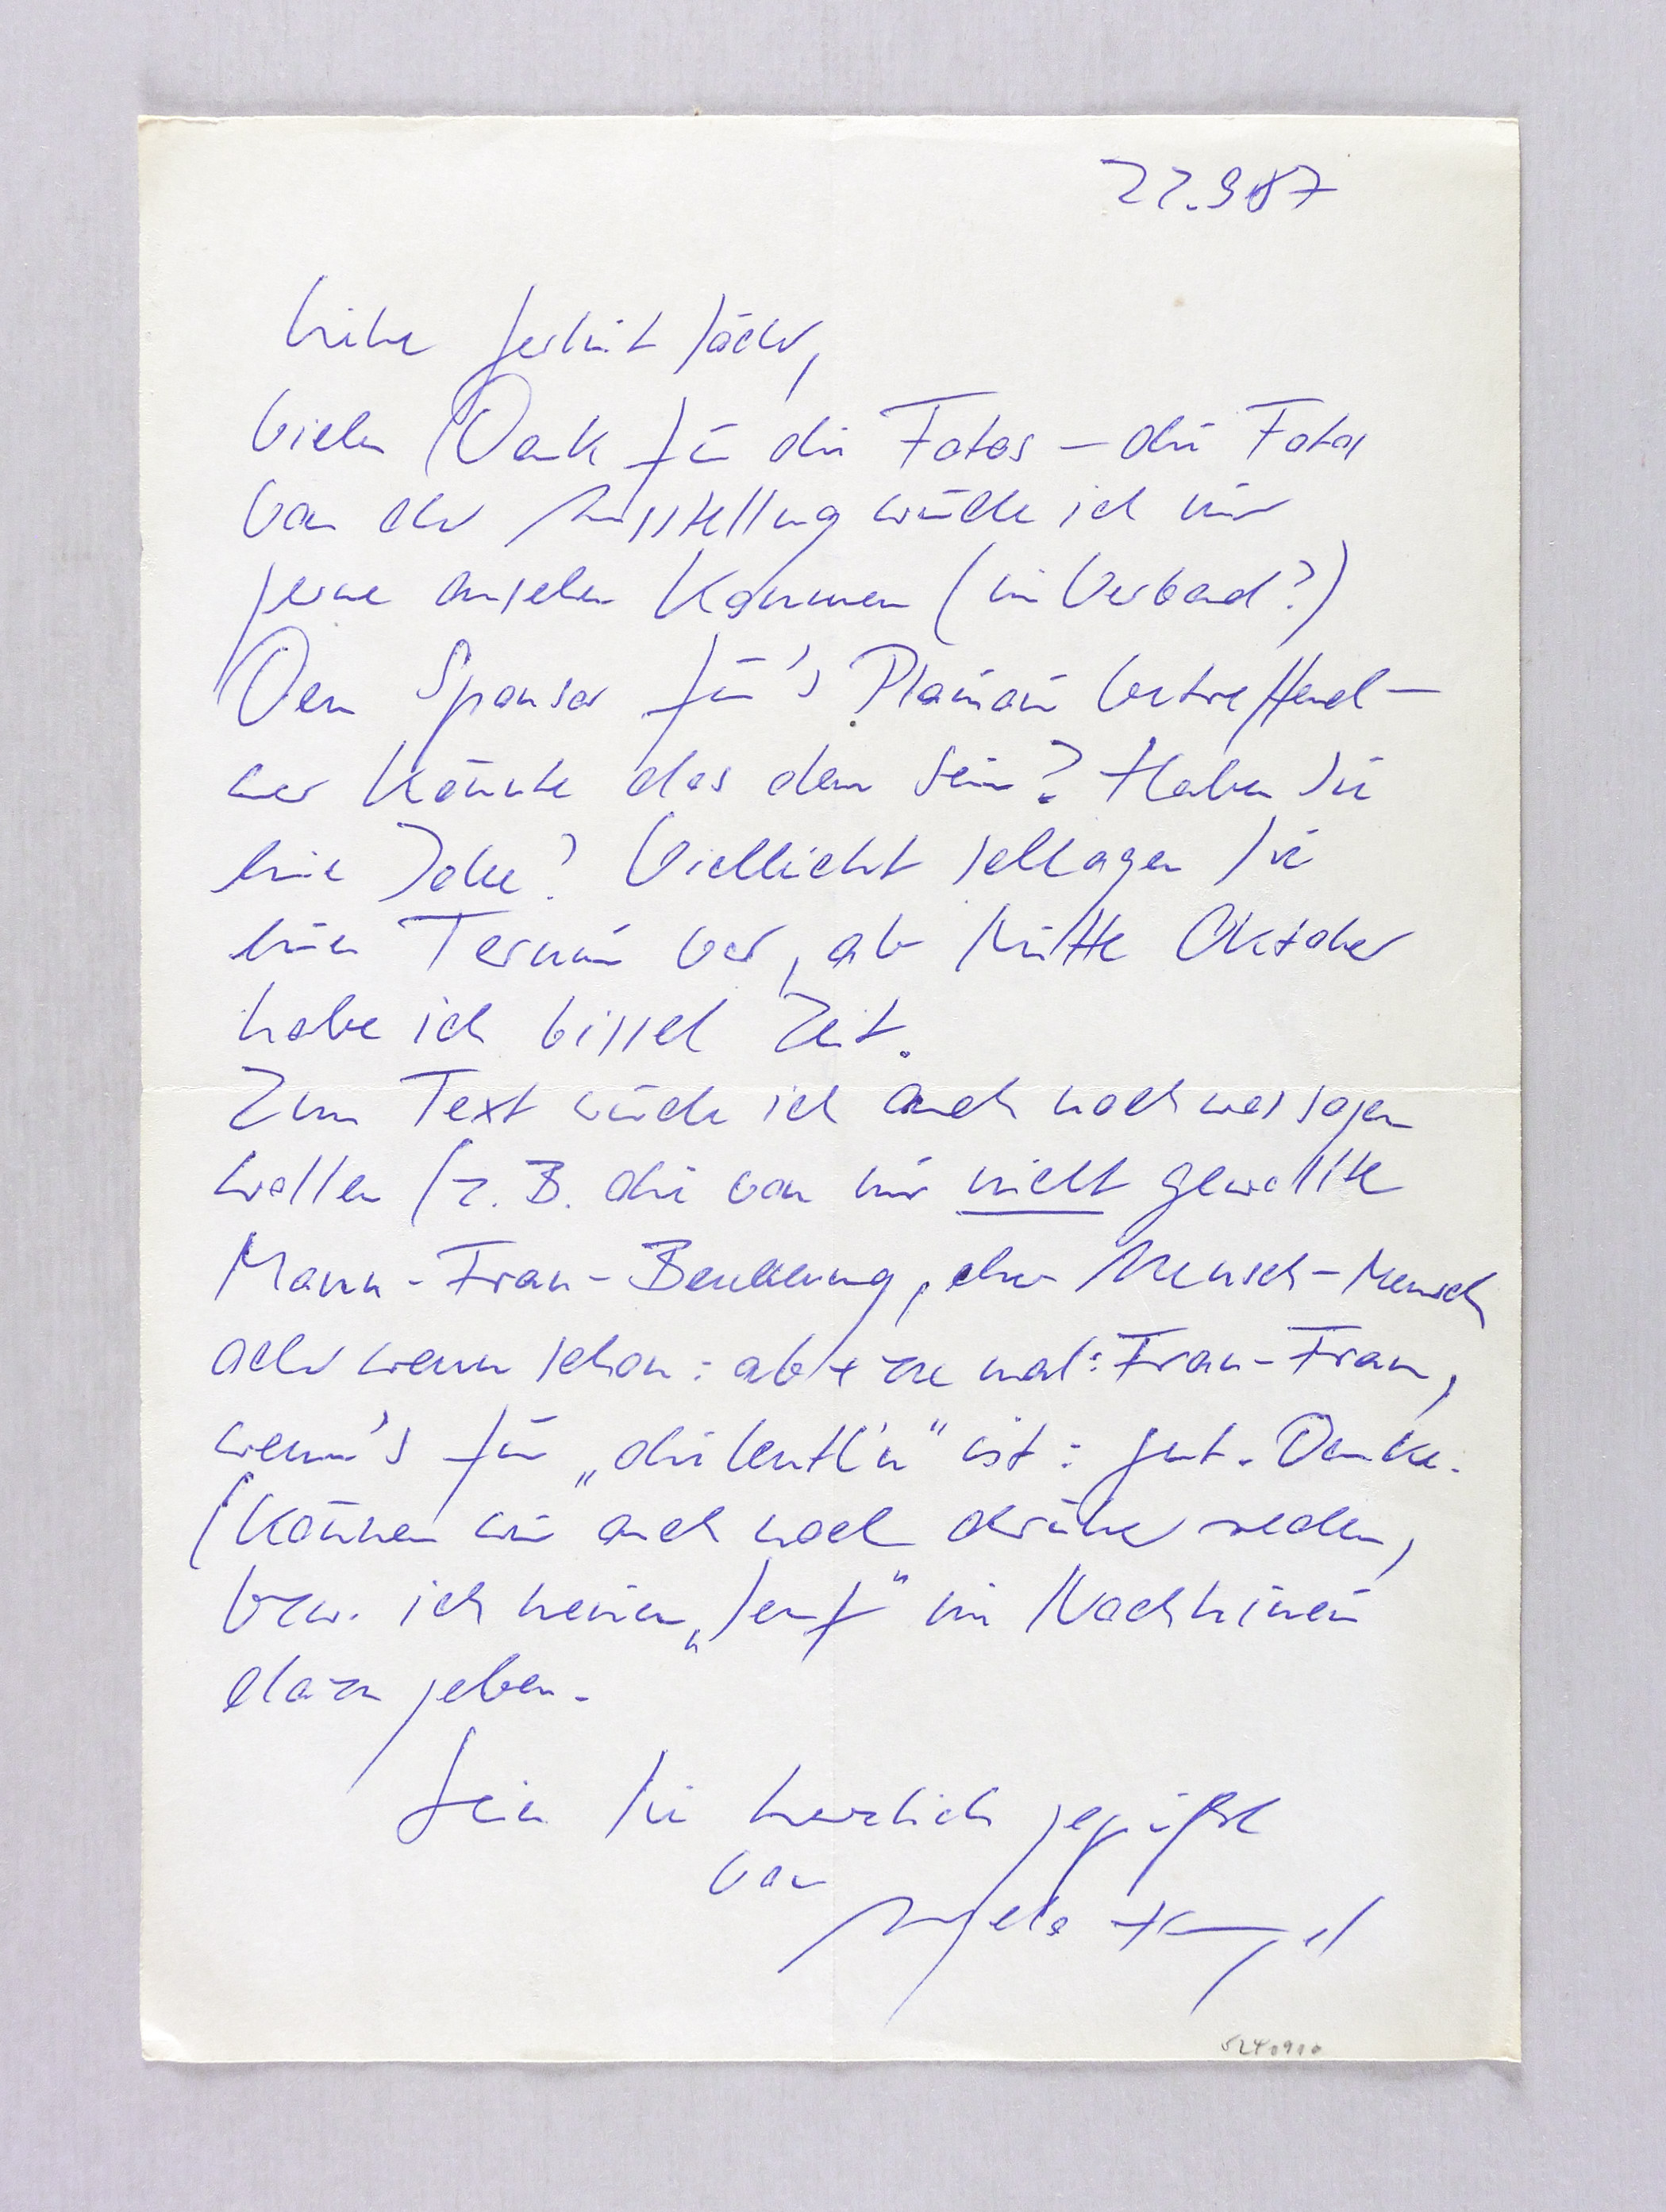 22.9 87
Liebe
vielen Dank für die Fotos – die Fotos
von der Ausstellung würde ich mir
gerne ansehen kommen (im Verband?)
Den Sponsor für's betreffend –
wer könnte das denn sein? Haben Sie
eine Idee? Vielleicht schlagen Sie
einen Termin vor, ab Mitte Oktober
habe ich bissel Zeit.
Zum Text würde ich auch noch was sagen
wollen (z. B. die von mir nicht gewollte
Mann-Frau- , eher Mensch-Mensch
oder wenn schon: ab und zu mal: Frau-Frau,
wenn's für „die Leutl'n" ist: gut. Danke.
(Können wir auch noch drüber reden,
bzw. ich meinen „Senf" im Nachhinein
dazu geben.
Seien Sie herzlich gegrüßt
von
Angela
5240910